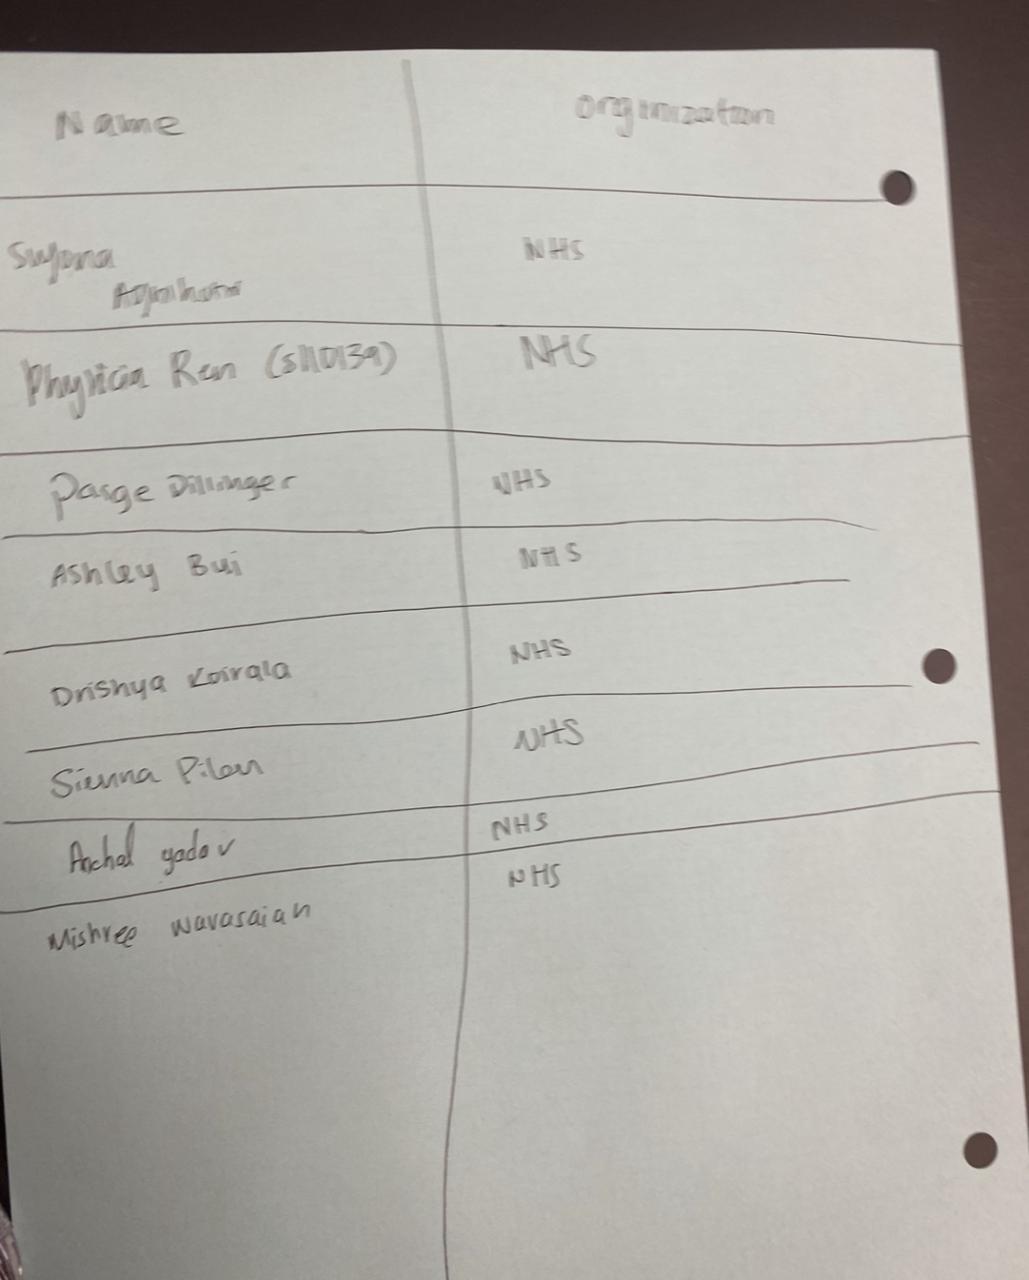 Name organization
Suyona NHS
Physicia Ren (s110139) NHS
Paige Dillinger NHS
Ashley Bui NHS
Drishya Koirala NHS
Sienna Pilon NHS
Anchal yadav NHS
Mishree Wavasaian NHS